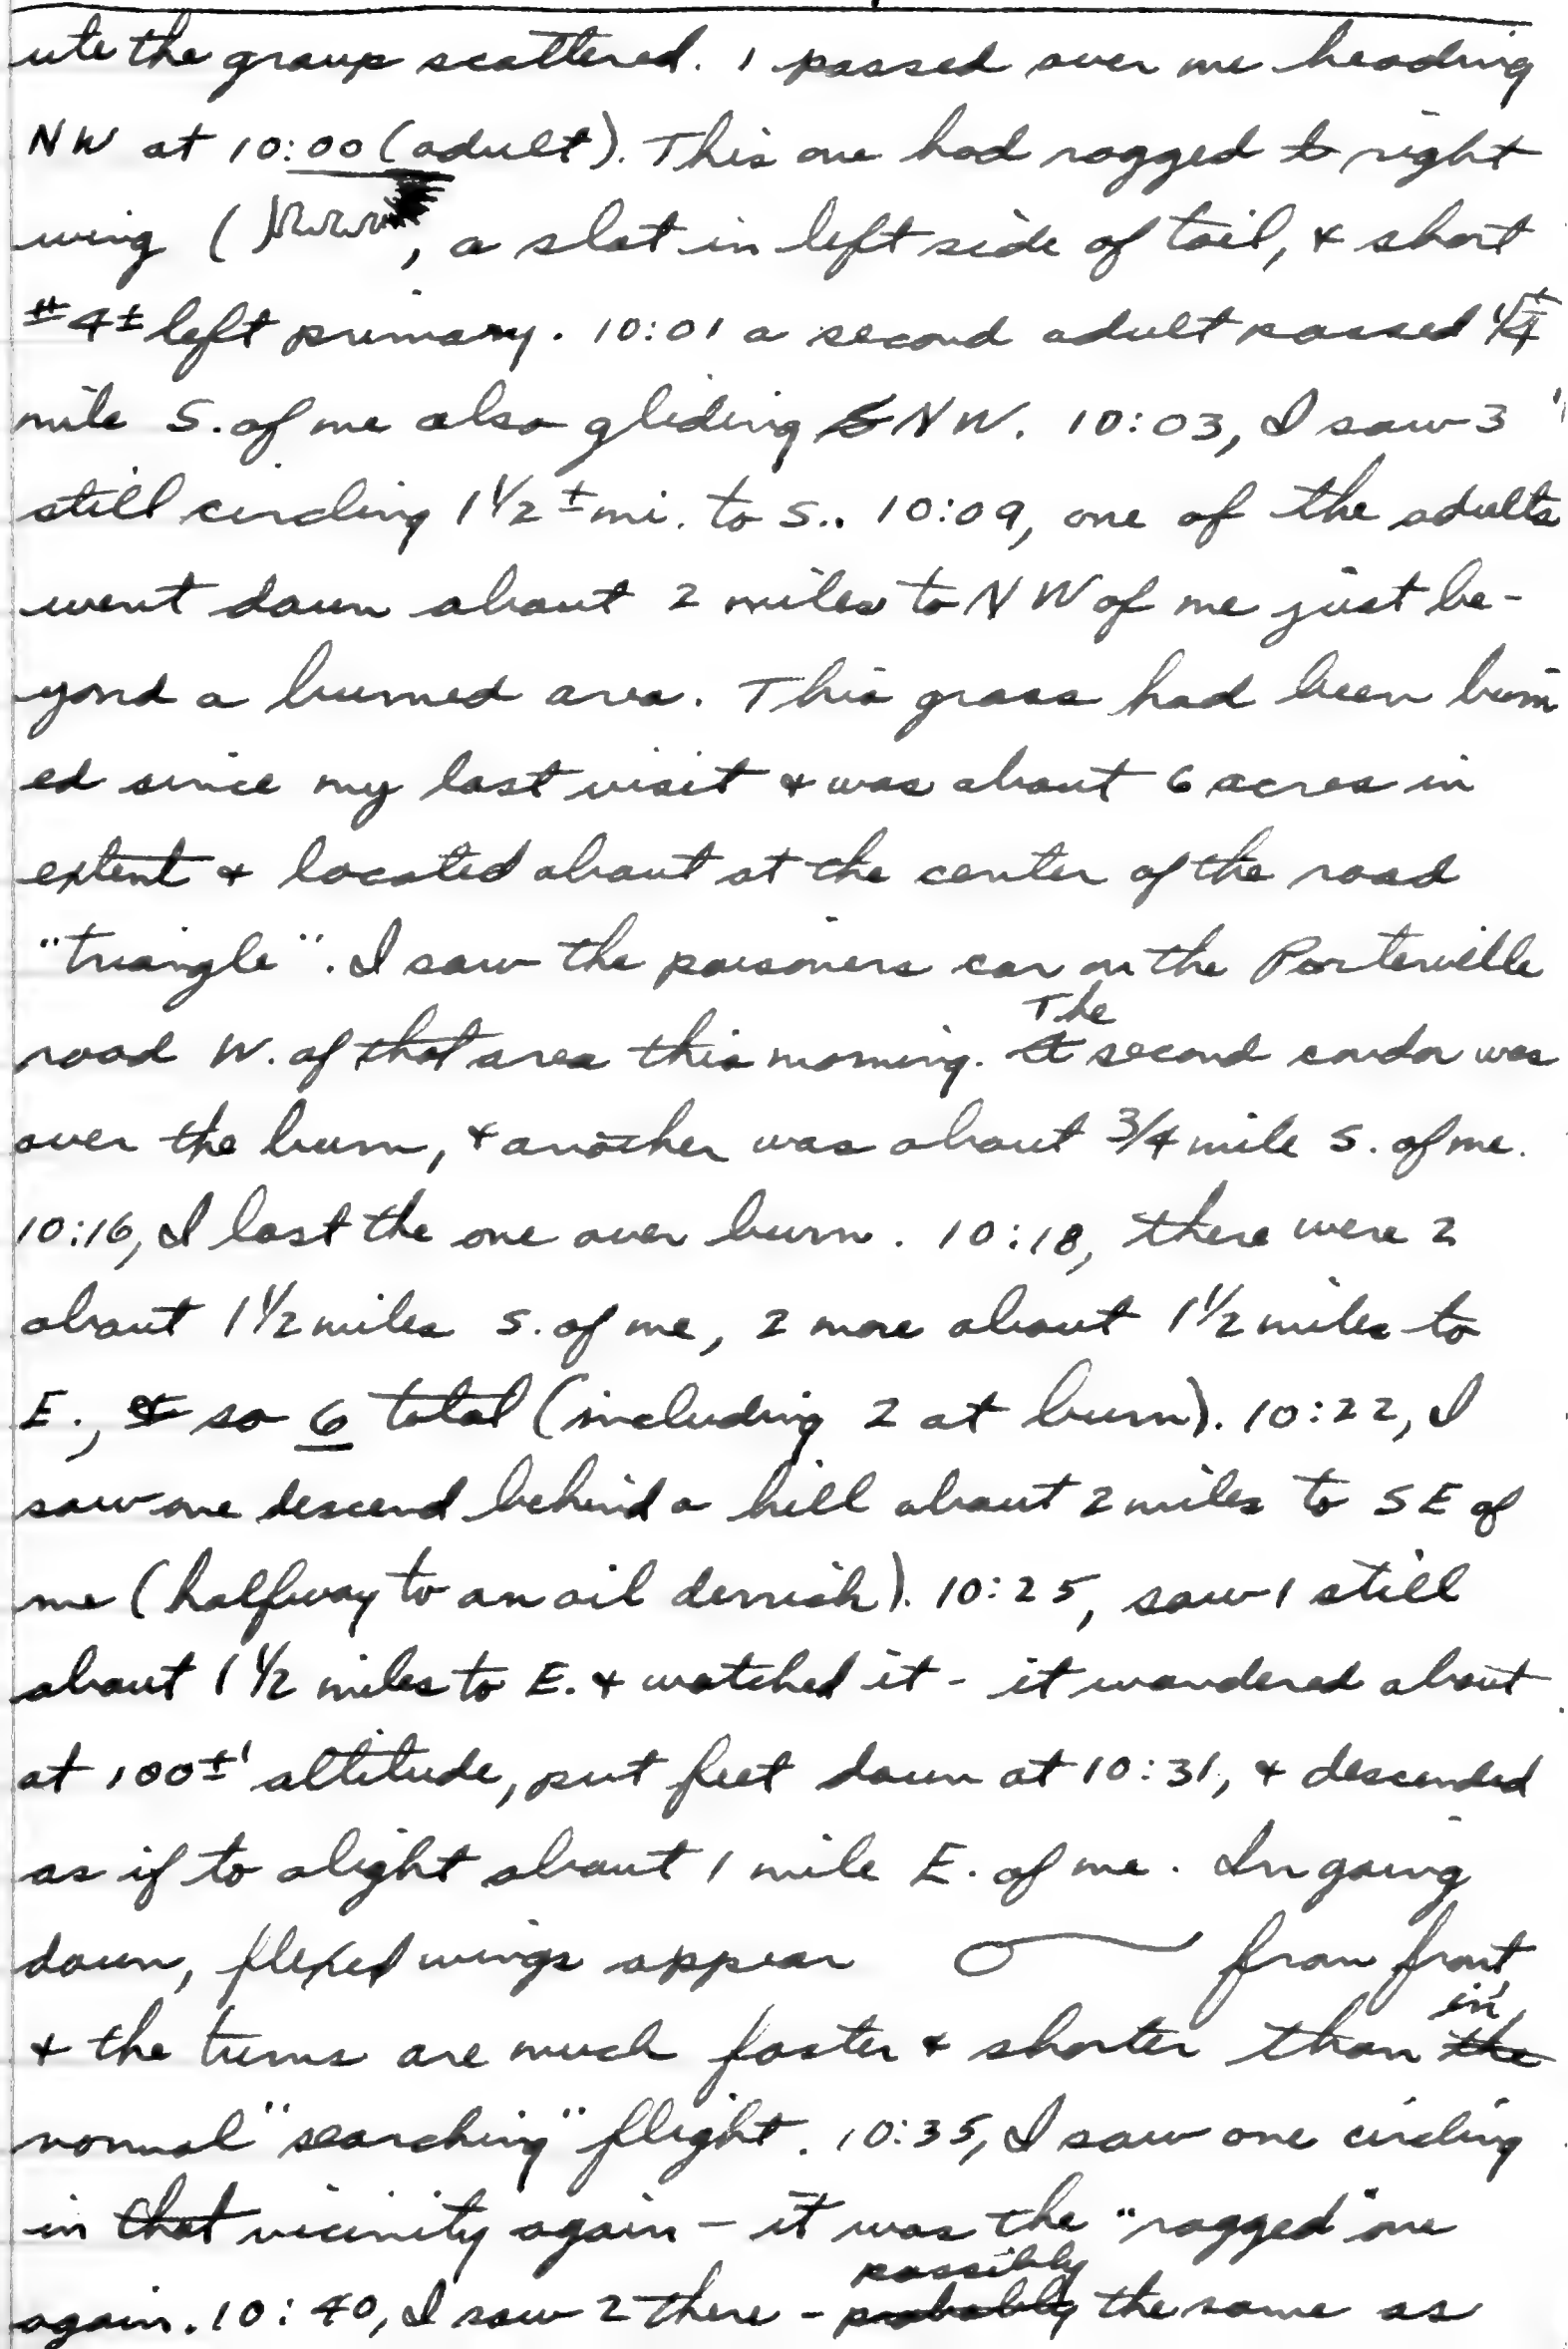 ute the group scattered. 1 passed over me heading
NW at 10:00 (adult). This one had ragged right
wing ( , a slot in left side of tail, & short
#4± left primary. 10:01 a second adult passed 1/4±
mile S. of me also gliding NW. 10:03, I saw 3
still circling 1 1/2 ± mi. to S.. 10:09, one of the adults
went down about 2 miles to NW of me just be-
yond a burned area. This grass had been burn
ed since my last visit & was about 6 acres in
extent & located about at the center of the road
"triangle". I saw the poisoners car on the Porterville
road W. of that area this morning. The second condor was
over the burn, & another was about 3/4 mile S. of me.
10:16, I lost the one over burn. 10:18, there were 2
about 1 1/2 miles S. of me, 2 more about 1 1/2 miles to
E., so 6 total (including 2 at burn). 10:22, I
saw one descend behind a hill about 2 miles to SE of
me (halfway to an oil derrick). 10:25, saw 1 still
about 1 1/2 miles to E. & watched it - it wandered about
at 100±' altitude, put feet down at 10:31, & descended
as if to alight about 1 mile E. of me. In going
down, flexed wings appear from front,
& the turns are much faster & shorter than in
normal "searching" flight. 10:35, I saw one circling
in that vicinity again - it was the "ragged" one
again. 10:40, I saw 2 there - possibly the same as